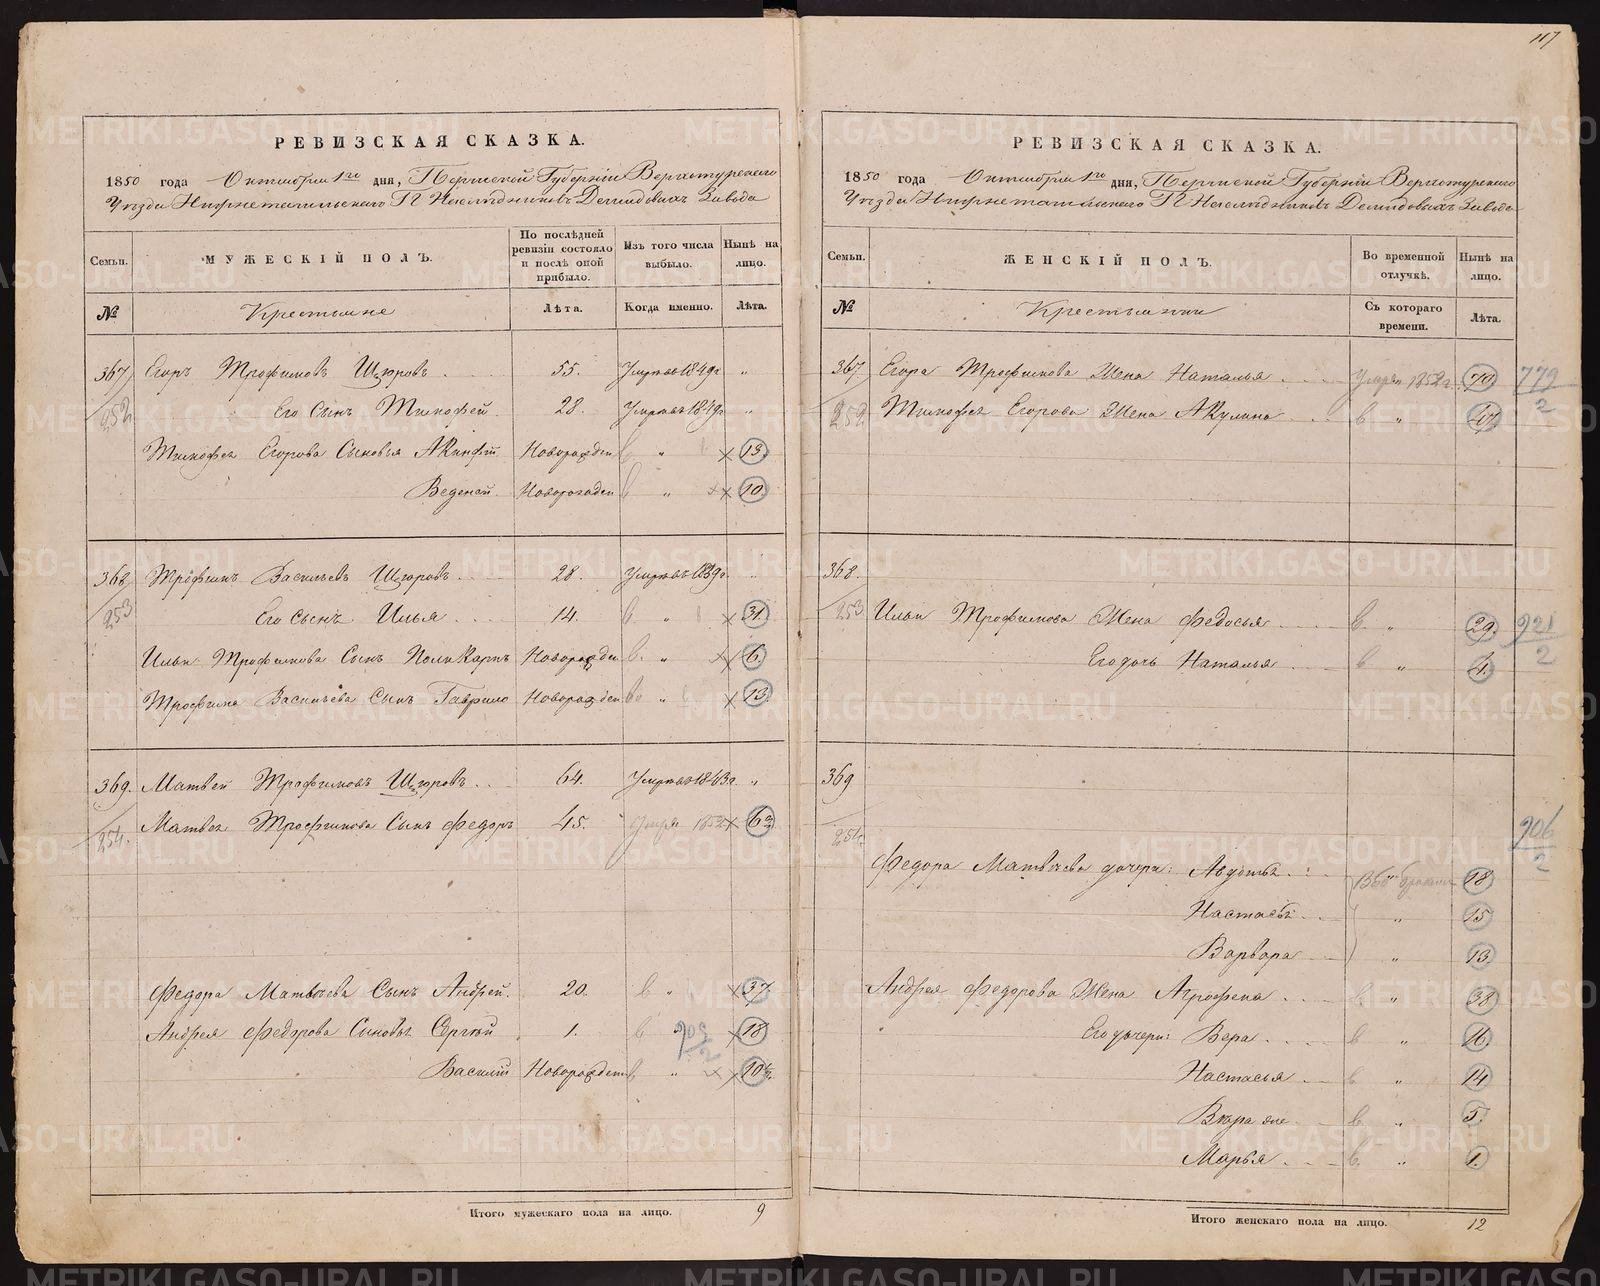 117
РЕВИЗСКАЯ СКАЗКА.
1850 года Октября 1го дня, Пермской Губернiи Верхотурскаго
Уѣзда Нижнетагильскаго Г. Наслѣдниковъ Демидовыхъ Завода
Семьи.
МУЖЕСКIЙ ПОЛЪ.
По послѣдней ревизiи состояло и послѣ оной прибыло.
Изъ того числа выбыло.
Нынѣ на лицо.
№
Крестьяне
Лѣта.
Когда именно.
Лѣта.
367 Егоръ Трофимовъ Щюровъ 55. Умръ въ 1849г „
252 Его Сынъ Тимофей 28. Умръ въ 1849г „
Тимофея Егорова Сыновья Акинфiй Новорожден „ 13.
Веденей Новорожден „ 10.
368 Трофимъ Васильевъ Щюровъ 28. Умръ въ 1839г. „
253 Его Сынъ Илья 14. „ 31.
Ильи Трофимова Сынъ Поликарпъ Новорожден „ 6.
Трофима Васильева Сынъ Гаврило Новорожден „ 13.
369. Матвей Трофимовъ Щюровъ 64. Умръ въ 1843г. „
254. Матвея Трофимова Сынъ Федоръ 45. умръ 1852 62
Федора Матвѣева Сынъ Андрей. 20. „ 37.
Андрея Федорова Сыновья Сергѣй 1. „ 18
Василiй Новорожден „ 10½
909
2
Итого мужескаго пола на лицо. 9
РЕВИЗСКАЯ СКАЗКА.
1850 года Октября 1го дня, Пермской Губернiи Верхотурскаго
Уѣзда Нижнетагильскаго Г. Наслѣдниковъ Демидовыхъ Завода
Семьи.
ЖЕНСКIЙ ПОЛЪ.
Во временной отлучкѣ.
Нынѣ на лицо.
№
Крестьянки
Съ котораго времени.
Лѣта.
367 Егора Трофимова Жена Наталья Умръ 1852г. 70. 779
252 Тимофея Егорова Жена Акулина „ 47. 2
368.
253 Ильи Трофимова Жена Федосья „ 29. 921
Его дочь Наталья „ 4. 2
369
254. 906
2
Федора Матвѣева дочери: Авдотья „ 18
Настасья „ 15
Варвара „ 13.
Андрея Федорова Жена Аграфена „ 38
Его дочери: Вера „ 16.
Настасья „ 14
Вѣра же „ 5.
Марья „ 1.
Итого женскаго пола на лицо. 12
METRIKI.GASO-URAL.RU